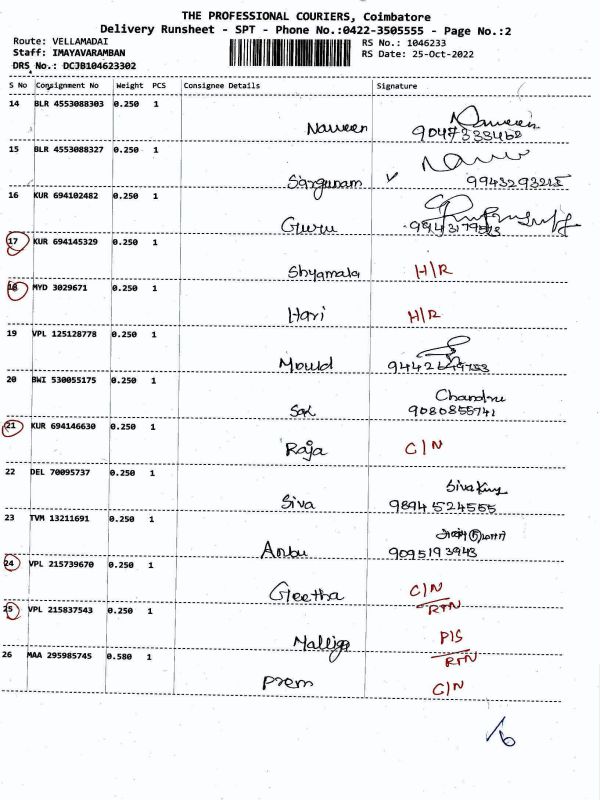 THE PROFESSIONAL COURIERS, Coimbatore
Delivery Runsheet - SPT - Phone No.:0422-3505555 - Page No.:2
Route: VELLAMADAI
RS No.: 1046233
Staff: IMAYAVARAMBAN
RS Date: 25-Oct-2022
DRS No.: DCJB104623302
S No Consignment No Weight PCS Consignee Details Signature
14 BLR 4553088303 0.250 1
Naveen 9047333468
15 BLR 4553088327 0.250 1
Sargunam ✓ 9943293215
16 KUR 694102482 0.250 1
Guru
17 KUR 694145329 0.250 1
Shyamala H/R
18 MYD 3029671 0.250 1
Hari H/R
19 VPL 125128778 0.250 1
Mould
20 BWI 530055175 0.250 1
Chandru
9080855741
21 KUR 694146630 0.250 1
Raja C/N
22 DEL 70095737 0.250 1
Siva 9894524555
23 TVM 13211691 0.250 1
Anbu 9095193943
24 VPL 215739670 0.250 1
Geetha C/N
RTN
25 VPL 215837543 0.250 1
Malliga P/S
RTN
26 MAA 295985745 0.580 1
Prem C/N